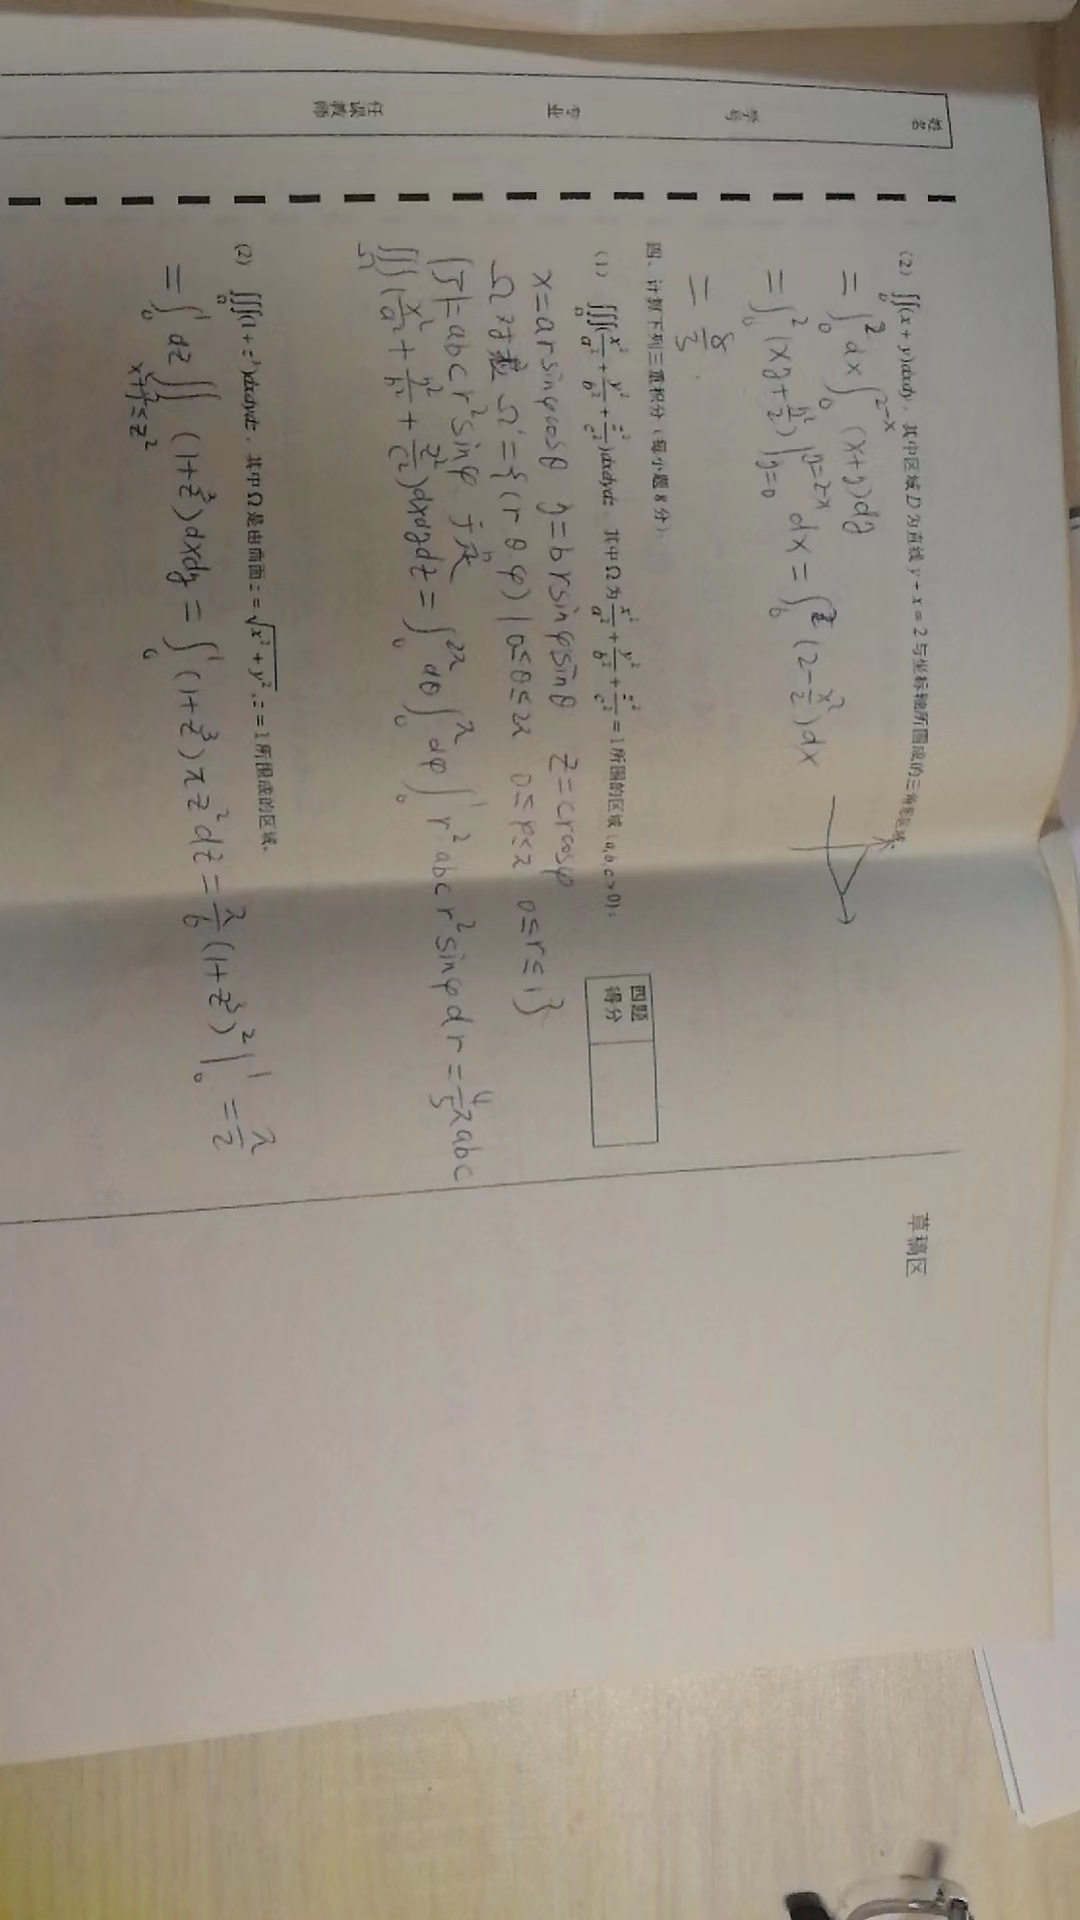 姓名
学号
专业
任课教师
草稿区
(2) ∬_D (x+y)dxdy，其中区域D为直线y+x=2与坐标轴所围成的三角形区域。
= ∫_0^2 dx ∫_0^{2-x} (x+y)dy
= ∫_0^2 (xy+y²/2)|_{y=0}^{y=2-x} dx = ∫_0^2 (2-x²/2)dx
= 8/3
四、计算下列三重积分（每小题8分）
四题得分
(1) ∭_Ω (x²/a²+y²/b²+z²/c²)dxdydz，其中Ω为x²/a²+y²/b²+z²/c²=1所围的区域(a,b,c>0)；
x=arsinφcosθ y=brsinφsinθ z=crcosφ
Ω对应 Ω'={(r θ φ) | 0≤θ≤2π 0≤φ≤π 0≤r≤1}
|J|=abcr²sinφ 于是
∭_Ω (x²/a²+y²/b²+z²/c²)dxdydz = ∫_0^{2π} dθ ∫_0^π dφ ∫_0^1 r² abc r² sinφ dr = 4/5 πabc
(2) ∭_Ω (1+z³)dxdydz，其中Ω是由曲面z=√(x²+y²), z=1所围成的区域。
= ∫_0^1 dz ∬_{x²+y²≤z²} (1+z³)dxdy = ∫_0^1 (1+z³)πz²dz = π/6 (1+z³)²|_0^1 = π/2